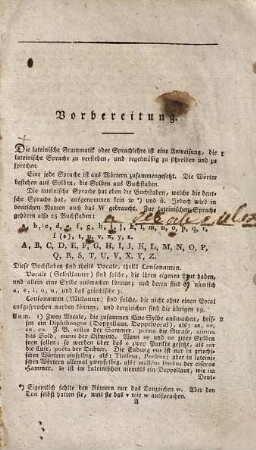 Vorbereitung.
Die lateinische Grammatik oder Sprachlehre ist eine Anweisung, die
lateinische Sprache zu verstehen, und regelmäßig zu schreiben und zu
sprechen.
Eine jede Sprache ist aus Wörtern zusammengesetzt. Die Wörter
bestehen aus Solben, die Solben aus Buchstaben.
Die lateinische Sprache hat eben die Buchstaben, welche die deut-
sche Sprache hat, ausgenommen kein w *) und ü. Jedoch wird in
deutschen Namen auch das W gebraucht. Zur lateinischen Sprache
gehören also 25 Buchstaben:
a, b, c, d, e, f, g, h, i, j, k, l, m, n, o, p, q, r,
f (s), t, u, v, x, y, z.
A, B, C, D, E, F, G, H, I, J, K, L, M, N, O, P,
Q, R, S, T, U, V, X, Y, Z.
Diese Buchstaben sind theils Vocale, theils Consonanten.
Vocale (Selbstlauter) sind solche, die ihren eigenen Laut haben,
und allein eine Sylbe ausmachen können; und deren sind 6) nämlich
a, e, i, o, u, und das griechische y.
Consonanten (Mitlauter) sind solche, die nicht ohne einen Vocal
ausgesprochen werden können, und dergleichen sind die übrigen 19.
Anm. 1) Zwey Vocale, die zusammen eine Sylbe ausmachen, heis-
sen ein Diphthongus (Doppellaut, Doppelvocal), als: ae, oe,
au, eu. Z. B. aestas der Sommer, poena die Strafe, aurum
das Gold, eurus der Ostwind. Wenn ae und oe zwey Sylben
seyn sollen: so werden über das e zwey Punkte gesetzt, als: aër
die Luft, poëta der Dichter. Die Endung eu ist nur in griechi-
schen Wörtern einsylbig, als: Theseus, Perseus; aber in lateinischen
Wörtern allemal zweysylbig,
*) Eigentlich fehlte den Römern nur das Tonzeichen w. Aber den
Ton selbst hatten sie, weil sie das v wie w aussprachen.
A